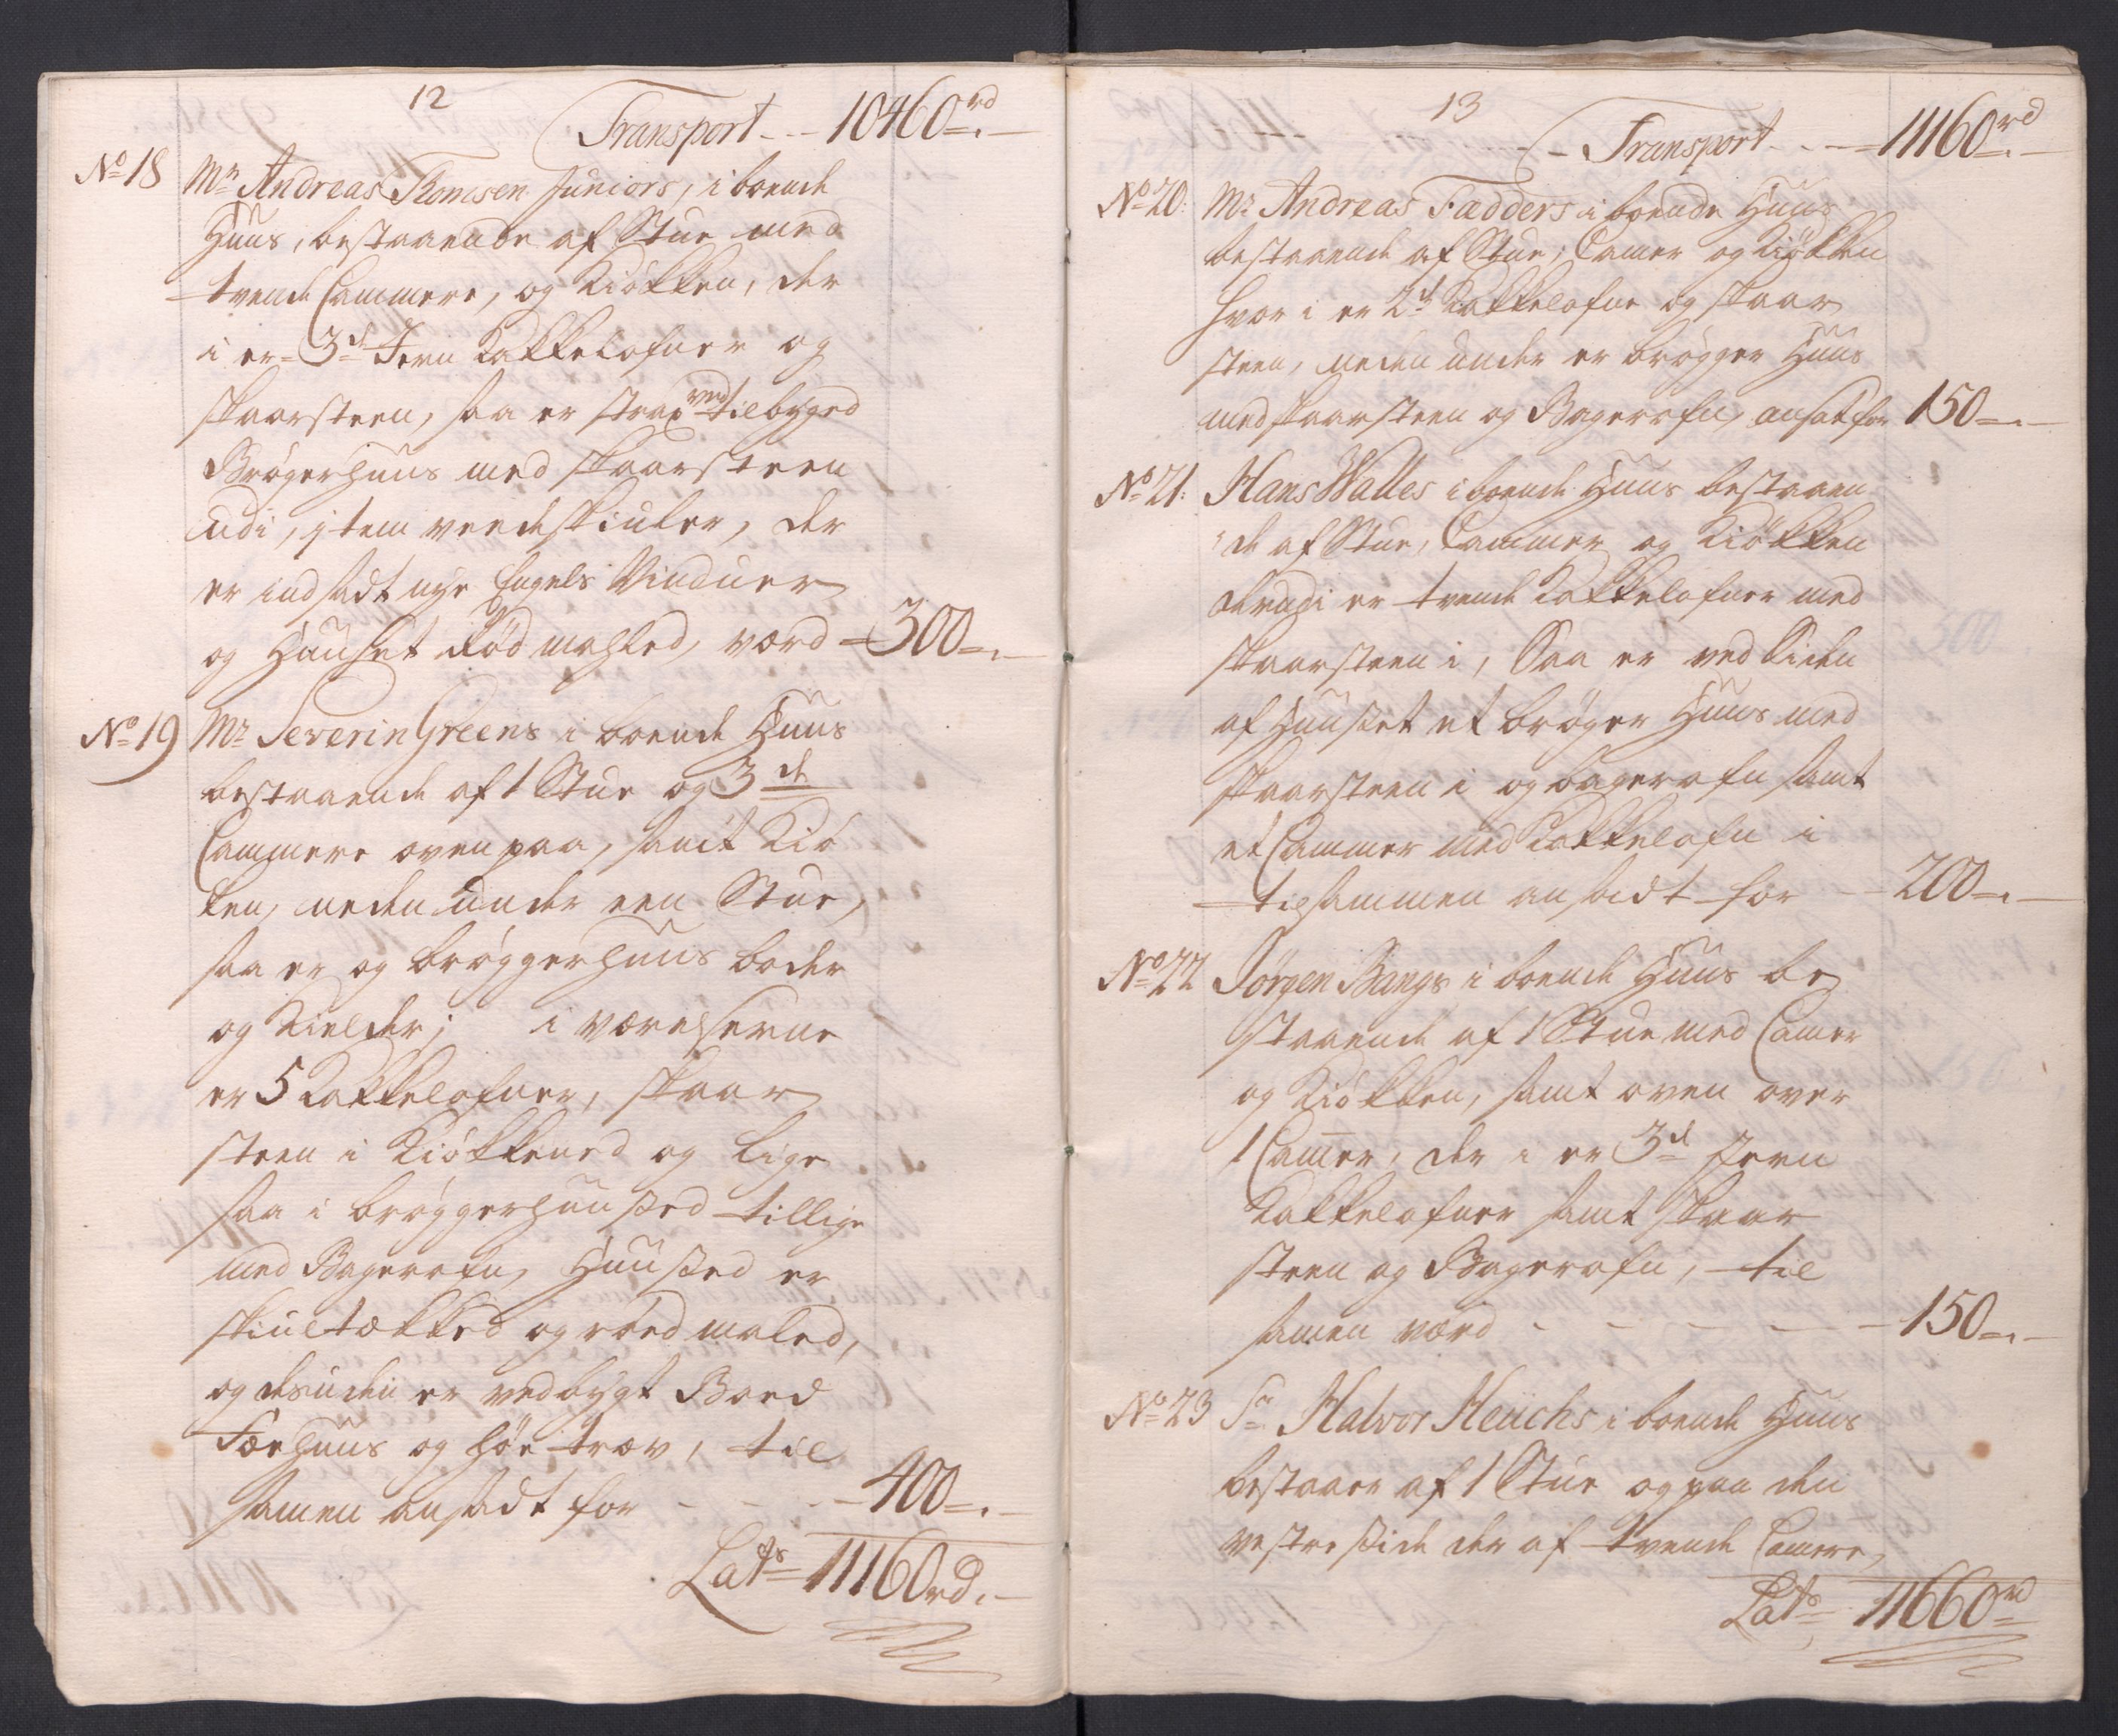 12
Transport - - - 10460 rd
No 18 Mr Andreas Thomsen Juniors, i boende
Huus, bestaaende af Stue med
tvende Cammere, og Kiökken, der
i er 3de Jern Kakkelofner og
skaarsteen, saa er strax ved tilbyged
Brögerhuus med skaarsteen
udi, item vendeskiuler, der
er indsadt nye Engels Vinduer
og Huuset Röd mahled, værd - 300 - . -
No 19 Mr Severin Greens i boende Huus
bestaaende af 1 Stue og 3de
Cammere oven paa, samt Kiö
ken, neden under een Stue,
saa er og bröggerhuus boder
og Kielder; i værelserne
er 5 Kakkelofner, skaar
steen i Kiökkened og lige
saa i bröggerhuused tillige
med Bagerofn, Huused er
skiultækked og röed maled,
og desuden er vedbygt Boed
Fæehuus og höe træv, til
samen ansadt for - - - - 400 - . -
Lats 11160 rd. -
13
- - Transport - - - 11160 rd
No 20: Mr Andreas Fadders i boende Huus
bestaaende af Stue, Camer og Kiökken
hvor i er 2de Kakkelofne og skaar
steen, neden under er brögger Huus
med skaarsteen og Bagerofn, ansat for 150 - . -
No 21: Hans Walles i boende Huus bestaaen
de af Stue, Cammer og Kiökken
derudi er tvende Kakkelofner med
skaarsteen i, Saa er ved Siden
af Huuset et bröger Huus med
skaarsteen i og bagerofn samt
et Cammer med Kakkelofn i
tilsammen ansadt for - - 200 - . -
No 22 Jörgen Bangs i boende Huus be
staaende af 1 Stue med Camer
og Kiökken, samt oven over
1 Camer, der i er 3de Jern
Kakkelofner samt skaar
steen og Bagerofn, til
samen værd - - - - - - 150 - . -
No 23 Sr Halvor Heuchs i boende Huus
bestaaer af 1 Stue og paa den
vestre side der af tvende Camere,
Lats 11660 rd